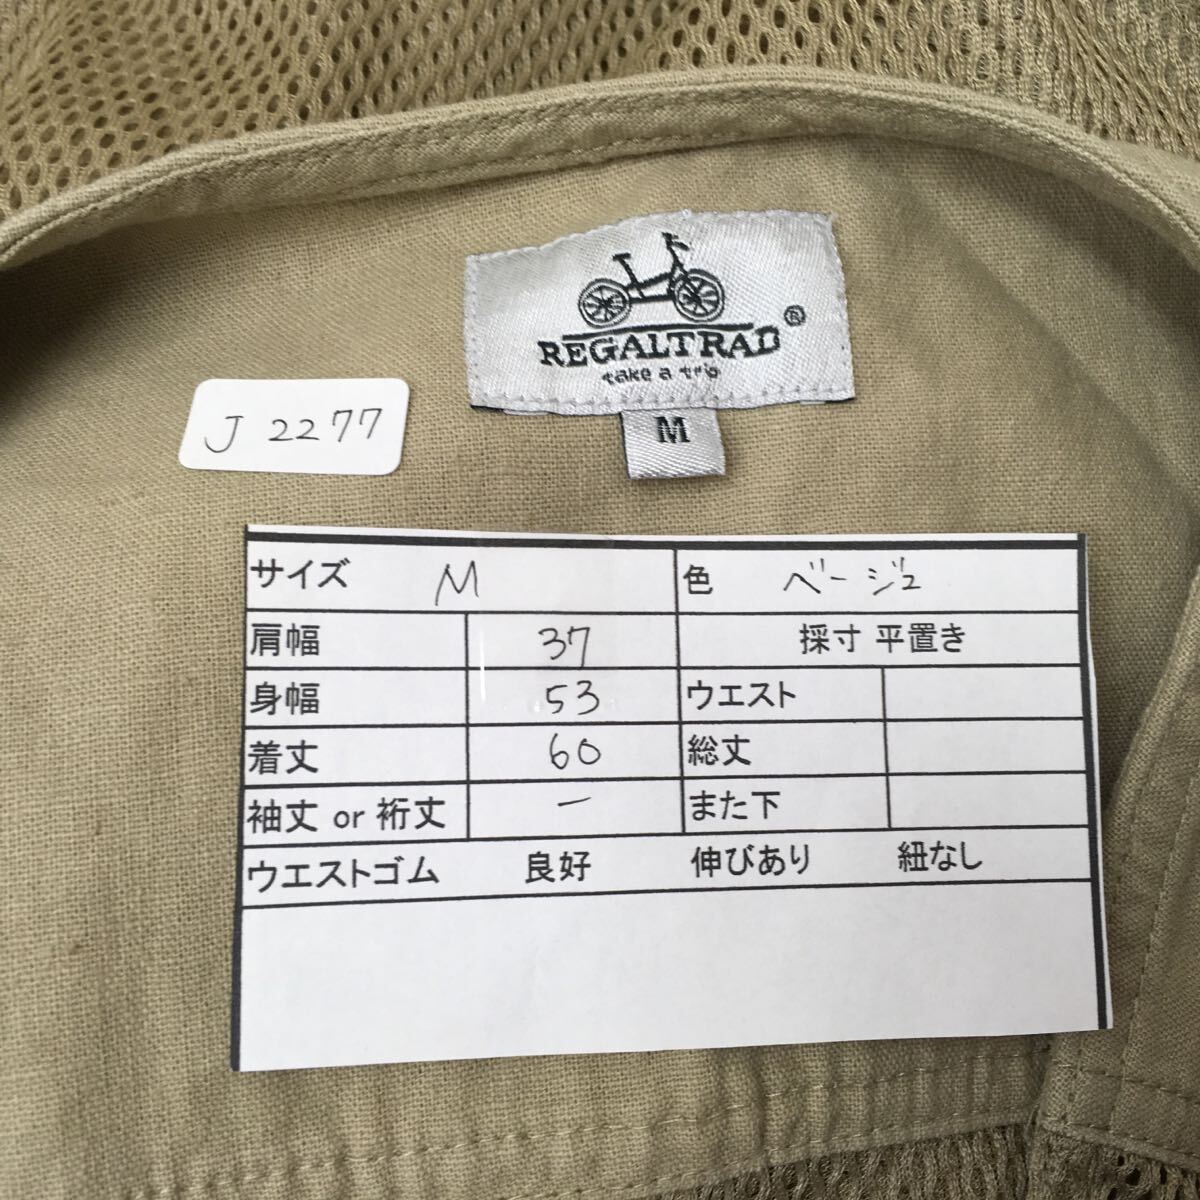 REGALTRAD®
take a trip
M
J 2277
サイズ M 色 ベージュ
肩幅 37 採寸 平置き
身幅 53 ウエスト
着丈 60 総丈
袖丈 or 裄丈 ー また下
ウエストゴム 良好 伸びあり 紐なし